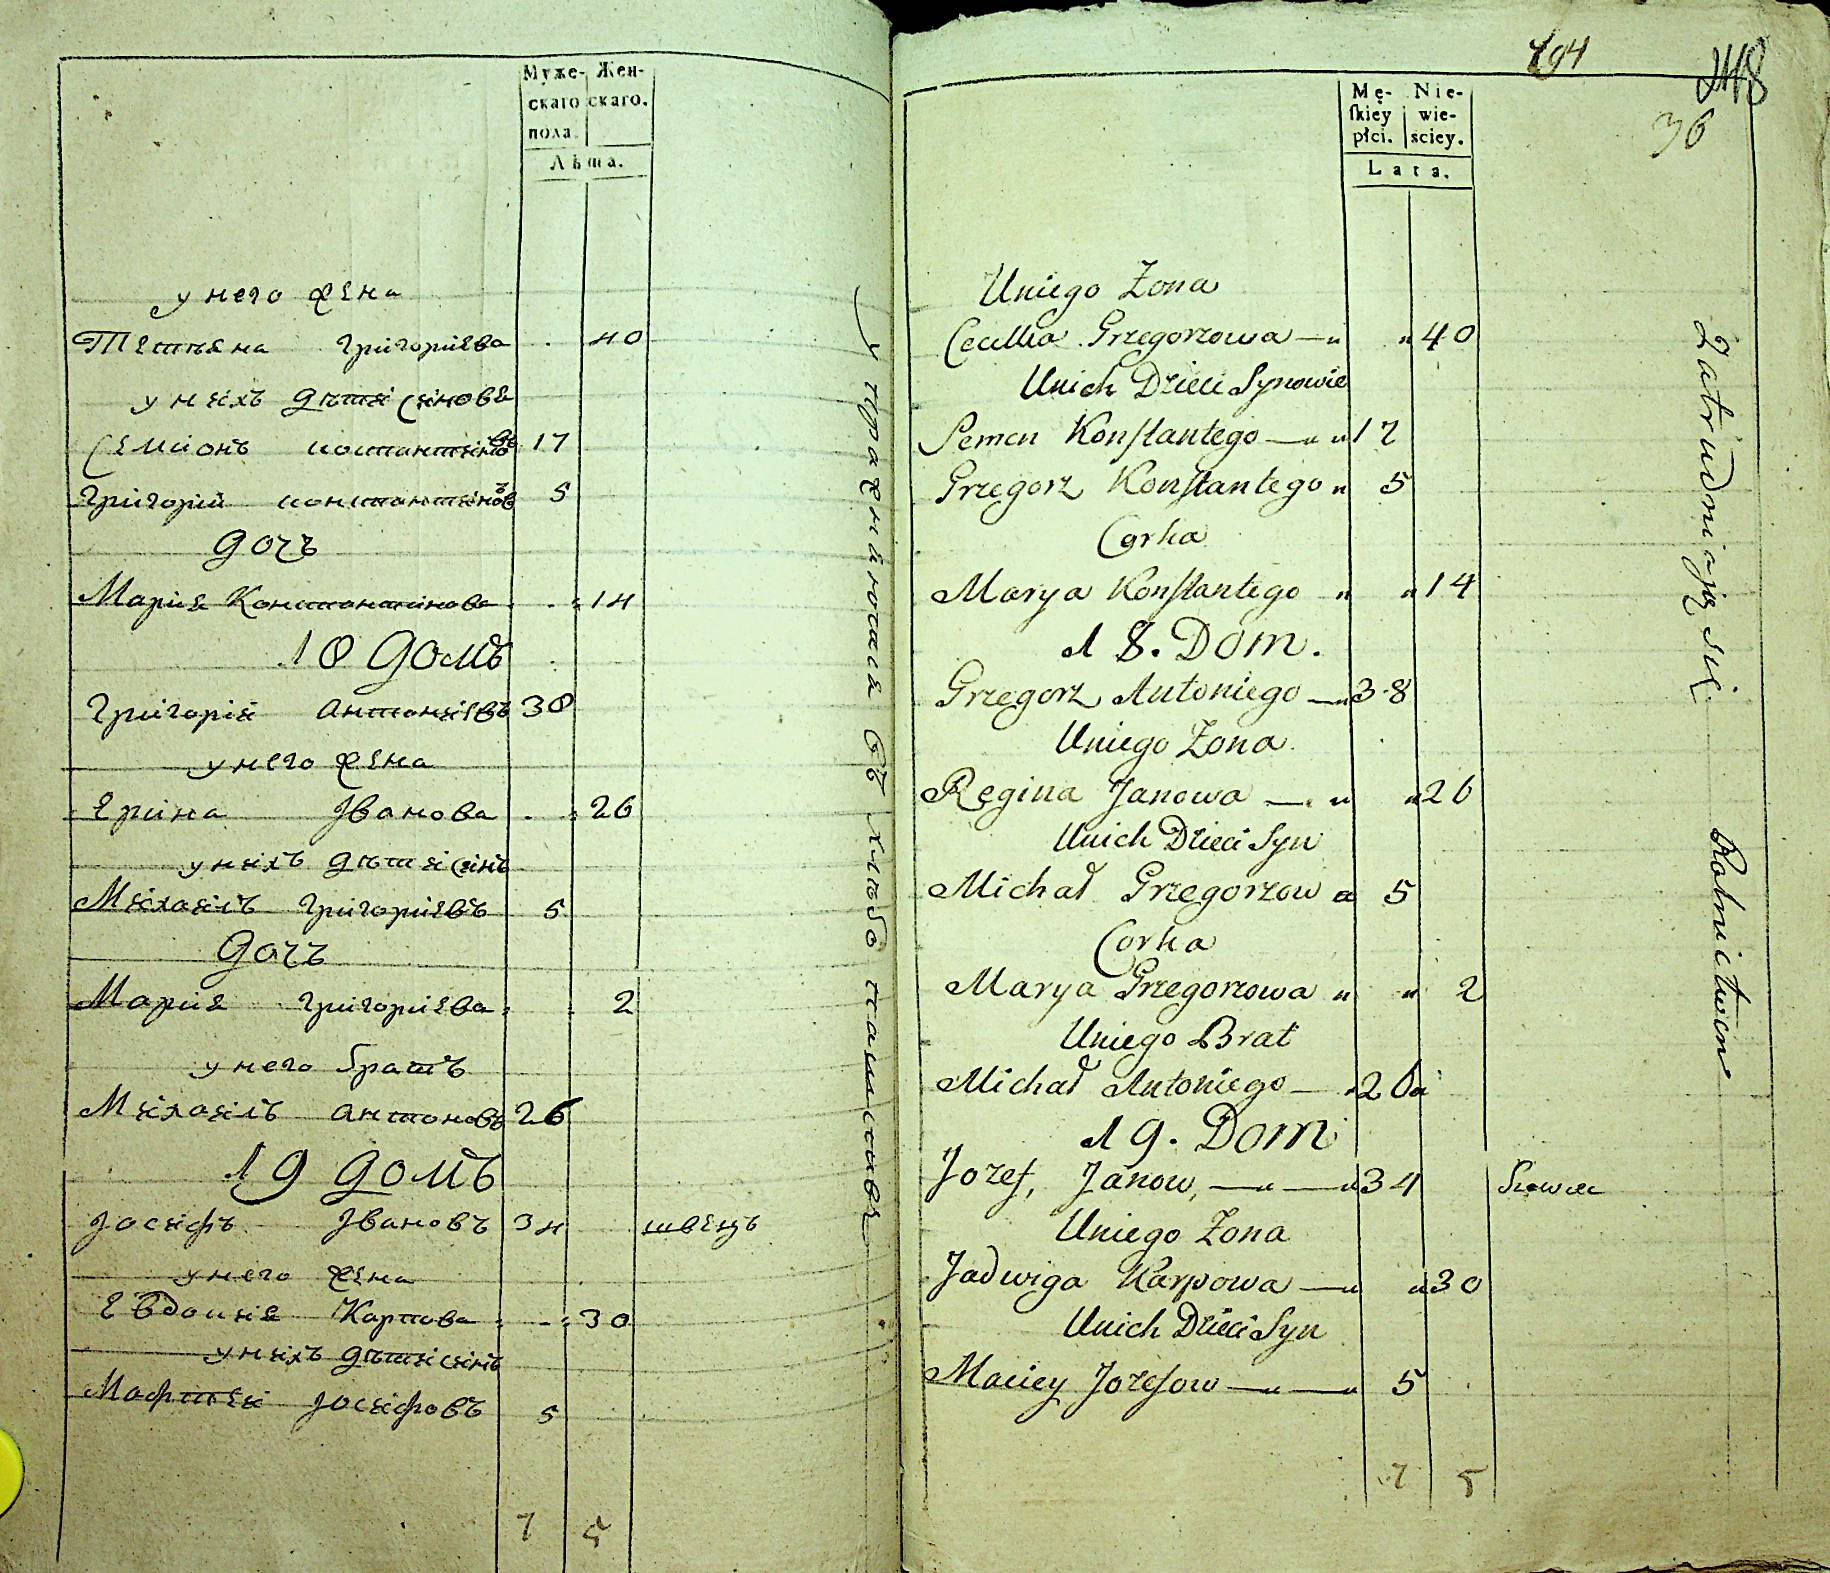 Муже- Жен-
скаго скаго.
пола.
Лѣта.
у него жена
Татьяна Григориева 40
у нихъ дѣти синове
Семионъ Костантиновъ 17
Григорий Константиновъ 5
дочъ
Мария Константинова 14
18 домъ
Григорий Антониевъ 38
у него жена
Ерина Иванова 26
у нихъ дѣти синъ
Михаилъ Григориевъ 5
дочъ
Мария Григориева 2
у него братъ
Михаилъ Антоновъ 26
19 домъ
Іосифъ Ивановъ 34 швецъ
у него жена
Евдокия Карпова 30
у нихъ дѣти синъ
Мафтей Іосифовъ 5
7 5
194
36
Mę- Nie-
skiey wie-
płci. sciey.
Lata.
Uniego Zona
Cecilia Grzegorzowa 40
Unich Dzieci Synowie
Semen Konstantego 17
Grzegorz Konstantego 5
Corka
Marya Konstantego 14
18. Dom.
Grzegorz Antoniego 38
Uniego Zona
Regina Janowa 26
Unich Dzieci Syn
Michał Grzegorzow 5
Corka
Marya Grzegorzowa 2
Uniego Brat
Michał Antoniego 26
19. Dom
Jozef, Janow, 34 Szewc
Uniego Zona
Jadwiga Karpowa 30
Unich Dzieci Syn
Maciey Jozefow 5
7 5
Zatrudniają się Rolnictwem